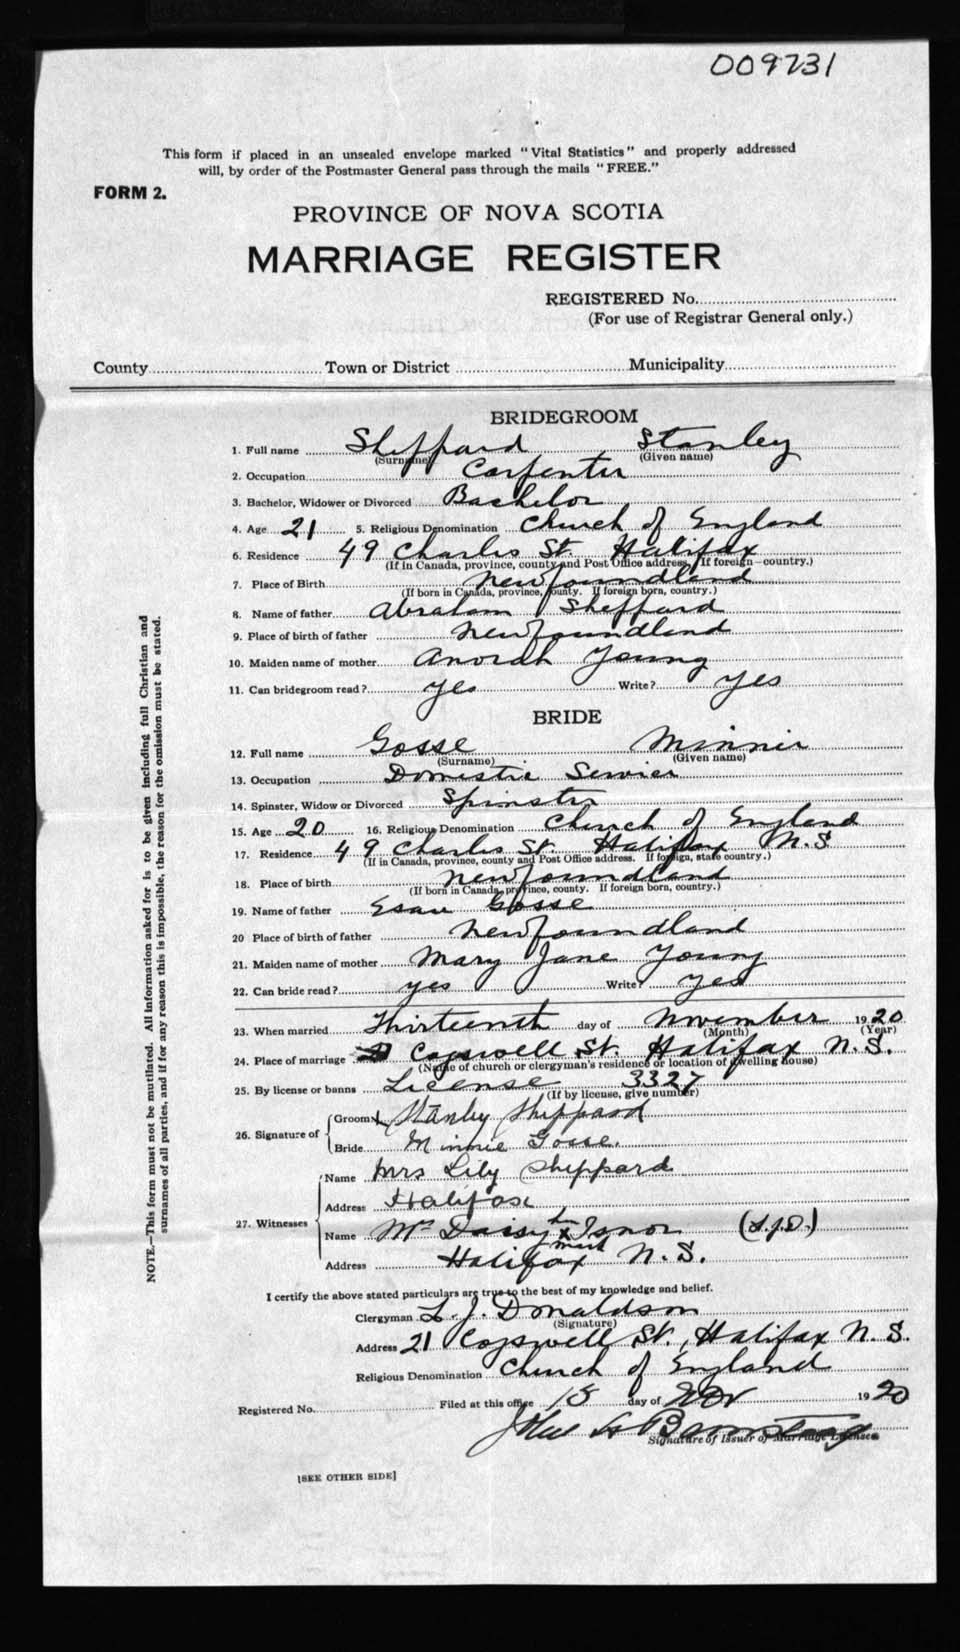 009731
This form if placed in an unsealed envelope marked "Vital Statistics" and properly addressed
will, by order of the Postmaster General pass through the mails "FREE."
FORM 2.
PROVINCE OF NOVA SCOTIA
MARRIAGE REGISTER
REGISTERED No.
(For use of Registrar General only.)
County Town or District Municipality
BRIDEGROOM
1. Full name Sheppard Stanley
(Surname) (Given name)
2. Occupation Carpenter
3. Bachelor, Widower or Divorced Bachelor
4. Age 21 5. Religious Denomination Church of England
6. Residence 49 Charles St. Halifax
(If in Canada, province, county and Post Office address. If foreign—country.)
7. Place of Birth Newfoundland
(If born in Canada, province, county. If foreign born, country.)
8. Name of father Abraham Sheppard
9. Place of birth of father Newfoundland
10. Maiden name of mother Anorah Young
11. Can bridegroom read? yes Write? yes
BRIDE
12. Full name Gosse Minnie
(Surname) (Given name)
13. Occupation Domestic
14. Spinster, Widow or Divorced Spinster
15. Age 20 16. Religious Denomination Church of England
17. Residence 49 Charles St. Halifax N.S
(If in Canada, province, county and Post Office address. If foreign, state country.)
18. Place of birth Newfoundland
(If born in Canada, province, county. If foreign born, country.)
19. Name of father Esau Gosse
20 Place of birth of father Newfoundland
21. Maiden name of mother Mary Jane Young
22. Can bride read? yes Write? Yes
23. When married Thirteenth day of November 1920
(Month) (Year)
24. Place of marriage Cogswell St. Halifax N.S.
(Name of church or clergyman's residence or location of dwelling house)
25. By license or banns License 3327
(If by license, give number)
26. Signature of Groom Stanley Sheppard
Bride Minnie Gosse.
27. Witnesses Name Mrs Lily Sheppard
Address Halifax
Name Mrs Daisy x Isnor (L.J.D.)
mark
Address Halifax N.S.
I certify the above stated particulars are true to the best of my knowledge and belief.
Clergyman L. J. Donaldson
(Signature)
Address 21 Cogswell St., Halifax N.S.
Religious Denomination Church of England
Registered No. Filed at this office 18 day of Nov 1920
Signature of Issuer of Marriage Licenses
[SEE OTHER SIDE]
NOTE.—This form must not be mutilated. All information asked for is to be given including full Christian and
surnames of all parties, and if for any reason this is impossible, the reason for the omission must be stated.